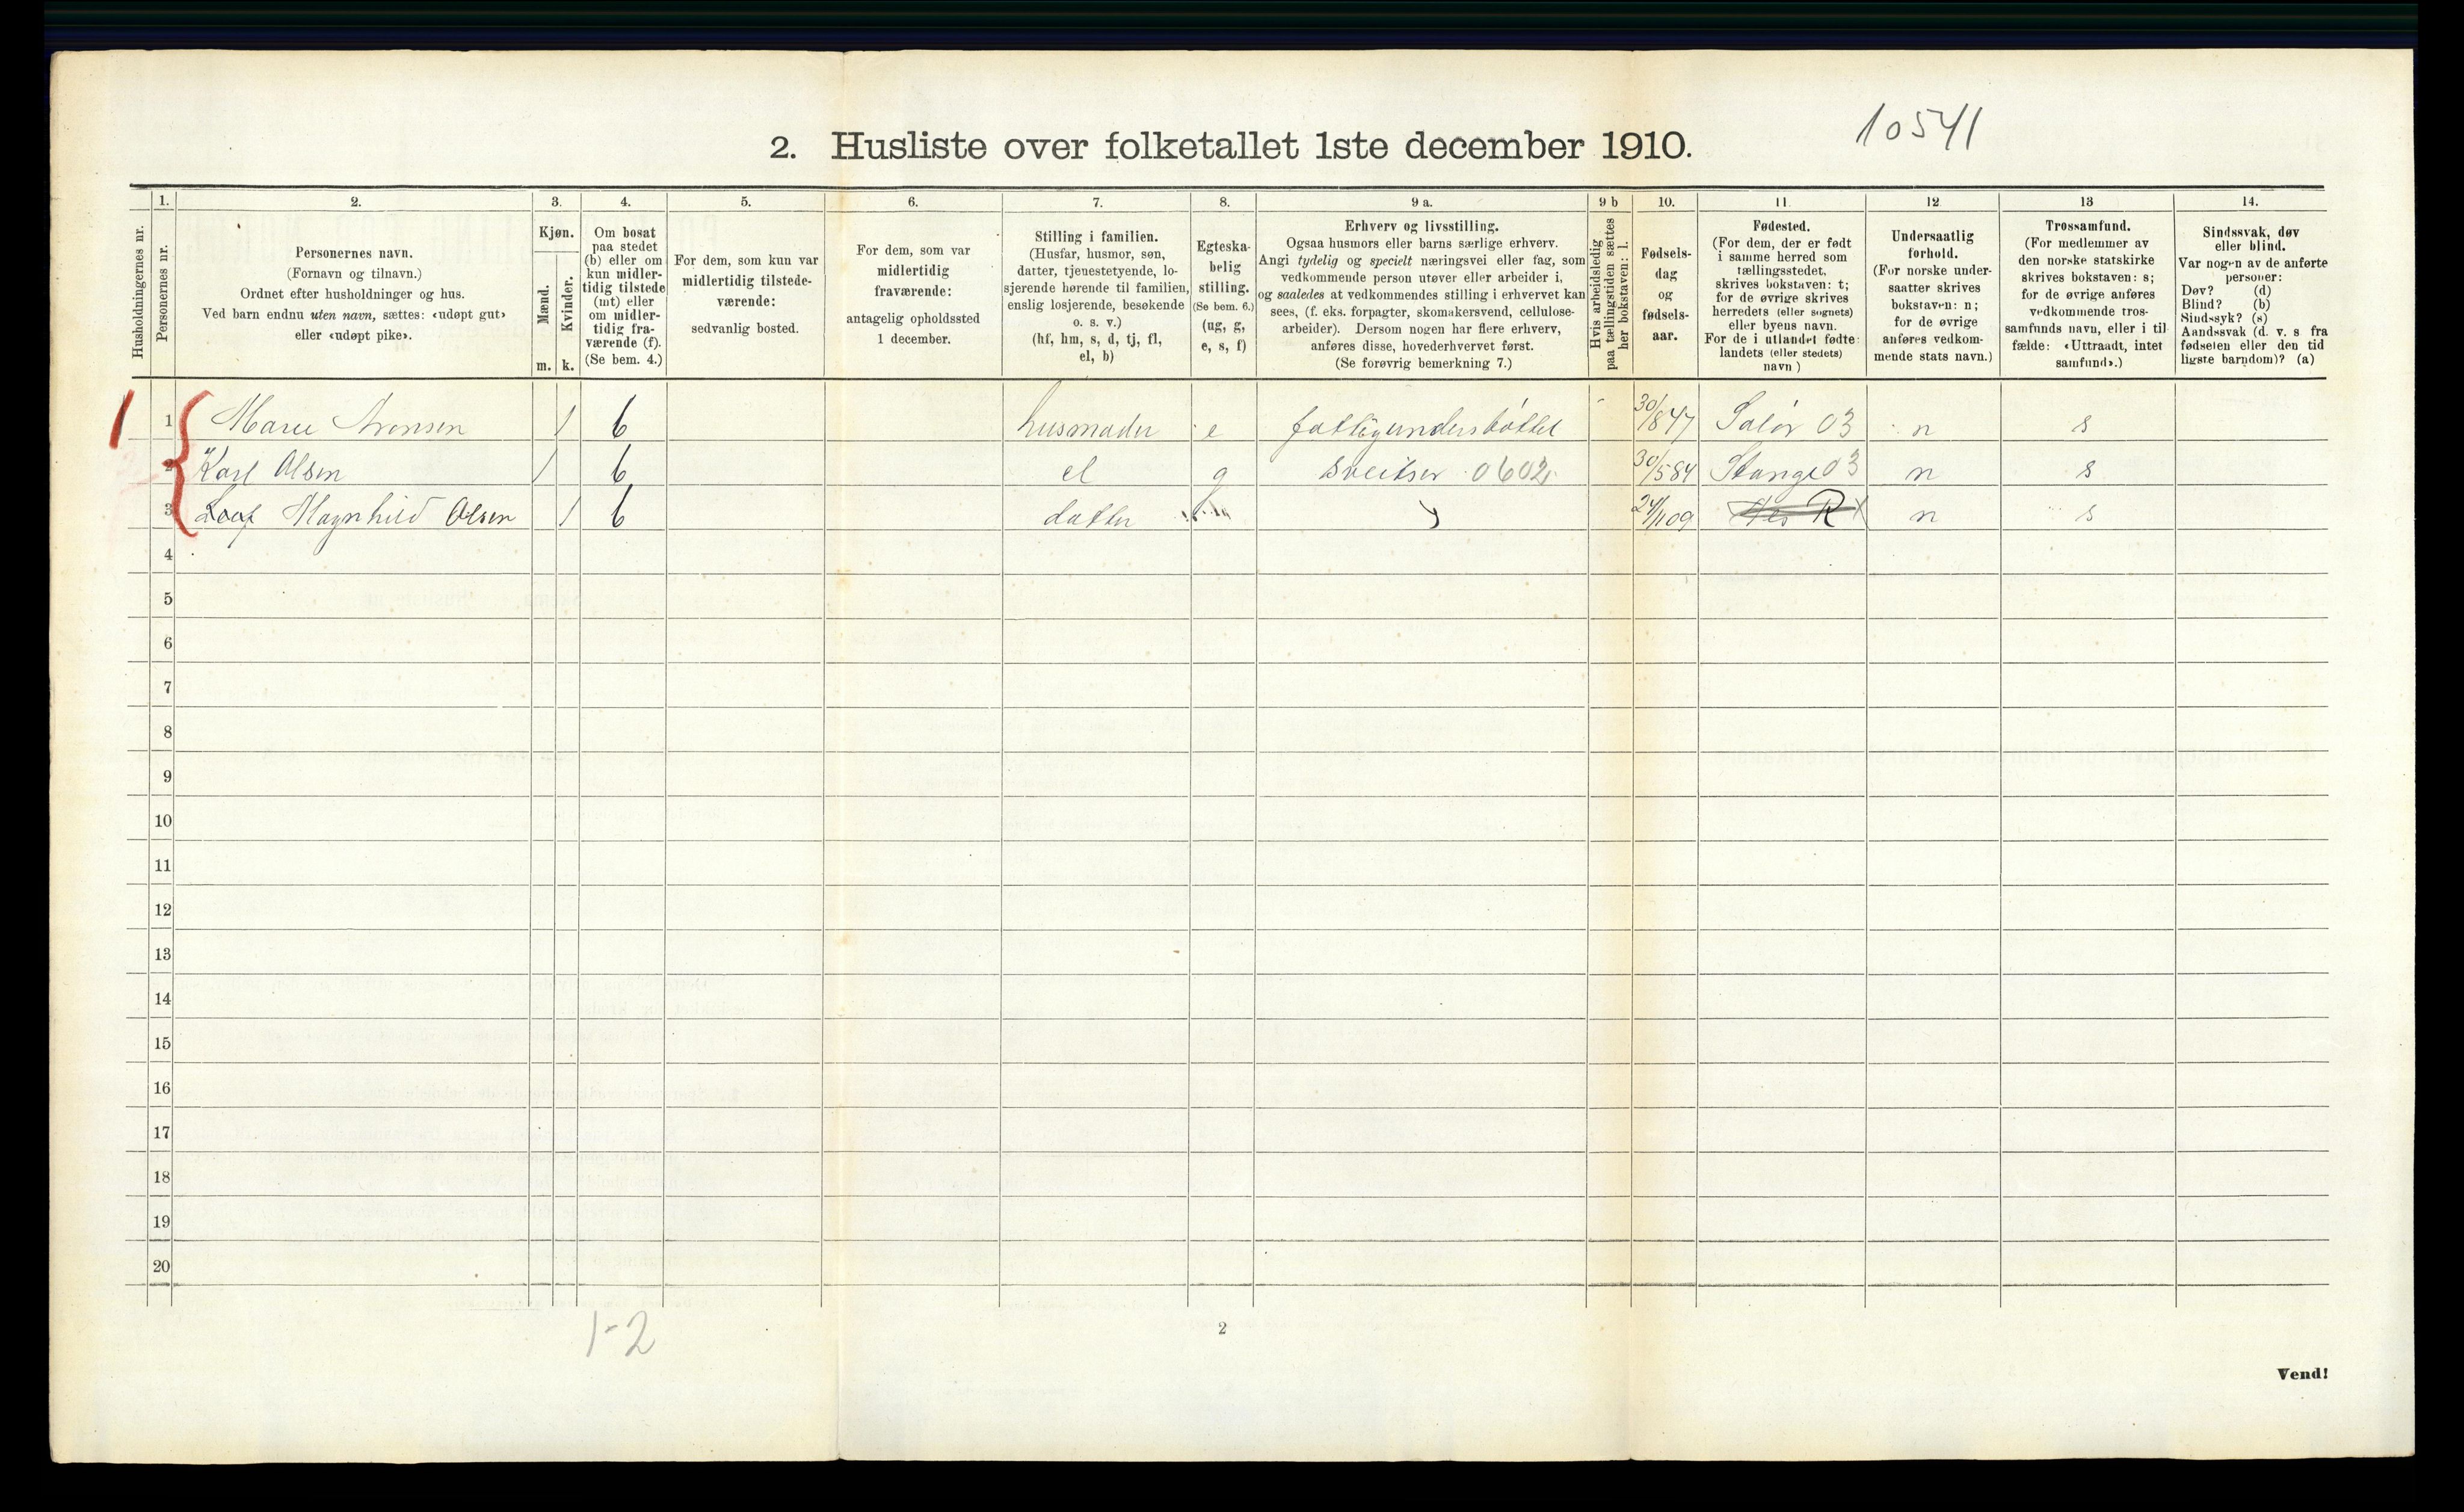 10541
2. Husliste over folketallet 1ste december 1910.
Husholdningernes nr.
1.
Personernes nr.
2.
Personernes navn.
(Fornavn og tilnavn.)
Ordnet efter husholdninger og hus.
Ved barn endnu uten navn, sættes: «udøpt gut»
eller «udøpt pike».
3.
Kjøn.
Mænd.
Kvinder.
m. k.
4.
Om bosat
paa stedet
(b) eller om
kun midler-
tidig tilstede
(mt) eller
om midler-
tidig fra-
værende (f).
(Se bem. 4.)
5.
For dem, som kun var
midlertidig tilstede-
værende:
sedvanlig bosted.
6.
For dem, som var
midlertidig
fraværende:
antagelig opholdssted
1 december.
7.
Stilling i familien.
(Husfar, husmor, søn,
datter, tjenestetyende, lo-
sjerende hørende til familien,
enslig losjerende, besøkende
o. s. v.)
(hf, hm, s, d, tj, fl,
el, b)
8.
Egteska-
belig
stilling.
(Se bem. 6.)
(ug, g,
e, s, f)
9 a.
Erhverv og livsstilling.
Ogsaa husmors eller barns særlige erhverv.
Angi tydelig og specielt næringsvei eller fag, som
vedkommende person utøver eller arbeider i,
og saaledes at vedkommendes stilling i erhvervet kan
sees, (f. eks. forpagter, skomakersvend, cellulose-
arbeider). Dersom nogen har flere erhverv,
anføres disse, hovederhvervet først.
(Se forøvrig bemerkning 7.)
9 b
Hvis arbeidsledig
paa tællingstiden sættes
her bokstaven: l.
10.
Fødsels-
dag
og
fødsels-
aar.
11.
Fødested.
(For dem, der er født
i samme herred som
tællingsstedet,
skrives bokstaven: t;
for de øvrige skrives
herredets (eller sognets)
eller byens navn.
For de i utlandet fødte:
landets (eller stedets)
navn )
12
Undersaatlig
forhold.
(For norske under-
saatter skrives
bokstaven: n;
for de øvrige
anføres vedkom-
mende stats navn.)
13
Trossamfund.
(For medlemmer av
den norske statskirke
skrives bokstaven: s;
for de øvrige anføres
vedkommende tros-
samfunds navn, eller i til
fælde: «Uttraadt, intet
samfund».)
14.
Sindssvak, døv
eller blind.
Var nogen av de anførte
personer:
Døv? (d)
Blind? (b)
Sindssyk? (s)
Aandssvak (d. v. s fra
fødselen eller den tid
ligste barndom)? (a)
1 1 Marie Aronsen 1 b husmoder e fattigunderstøttet 30/8 47 Solør 03 n s
2 Karl Olsen 1 b el g sveitser 0602 30/5 84 Stange 03 n s
3 Magnhild Olsen 1 b datter 24/1 09 n s
4
5
6
7
8
9
10
11
12
13
14
15
16
17
18
19
20
1-2
2
Vend!